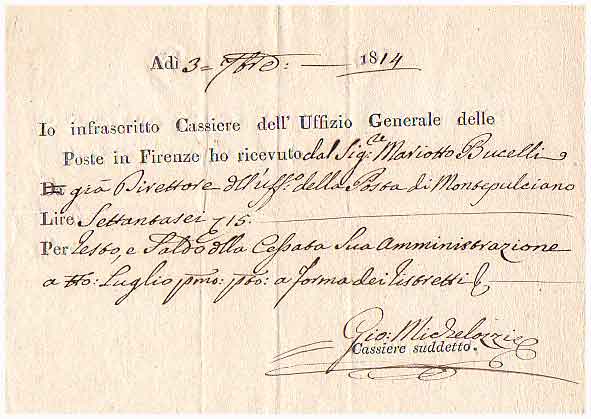 Adì 3 = 7bre: — 1814
Io infrascritto Cassiere dell' Uffizio Generale delle
Poste in Firenze ho ricevuto dal Sig:re Mariotto Bucelli
già Direttore dell'uff:o della Posta di Montepulciano
Lire Settantasei, 15.
Per resto, e Saldo della Cessata Sua Amministrazione
a tto: Luglio pmo: pto: a forma dei ristretti
Gio: Michelozzi
Cassiere suddetto.